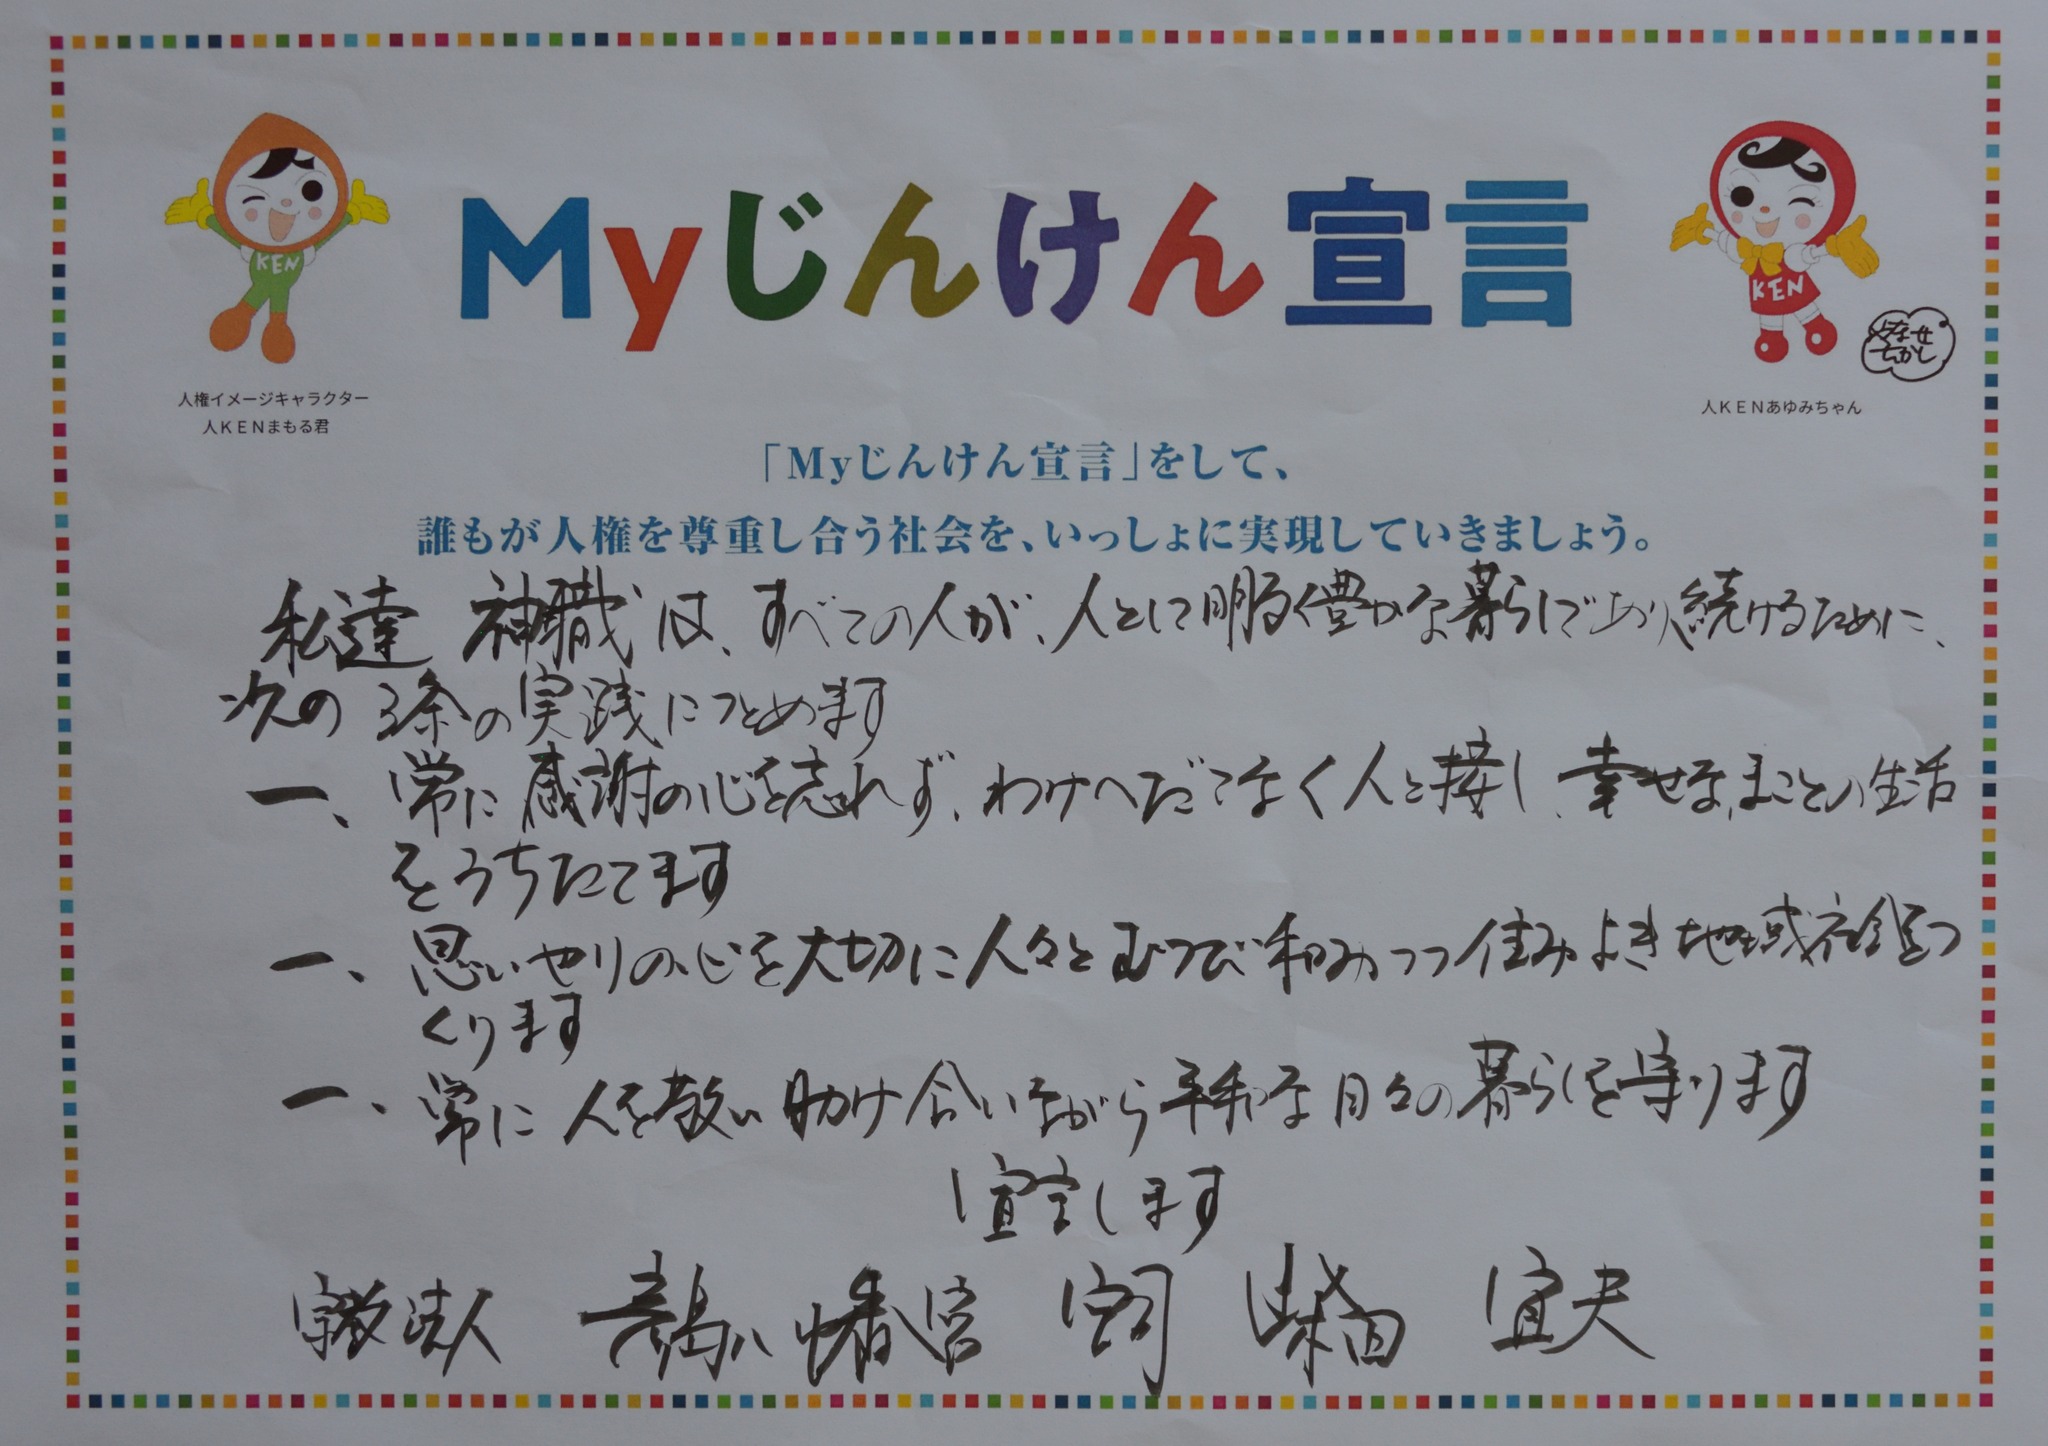 KEN
Myじんけん宣言
KEN
やなせ
たかし
人権イメージキャラクター
人KENまもる君
人KENあゆみちゃん
「Myじんけん宣言」をして、
誰もが人権を尊重し合う社会を、いっしょに実現していきましょう。
私達 神職は、すべての人が、人として明るく豊かな暮らしであり続けるために、
次の3条の実践につとめます
一、常に感謝の心を忘れず、わけへだてなく人と接し、幸せな、まことの生活
をうちたてます
一、思いやりの心を大切に人々とむつび和みつつ住みよき地域社会をつ
くります
一、常に人を敬い助け合いながら平和な日々の暮らしを守ります
宣言します
宗教法人 八幡宮 宮司 柴田 宜夫